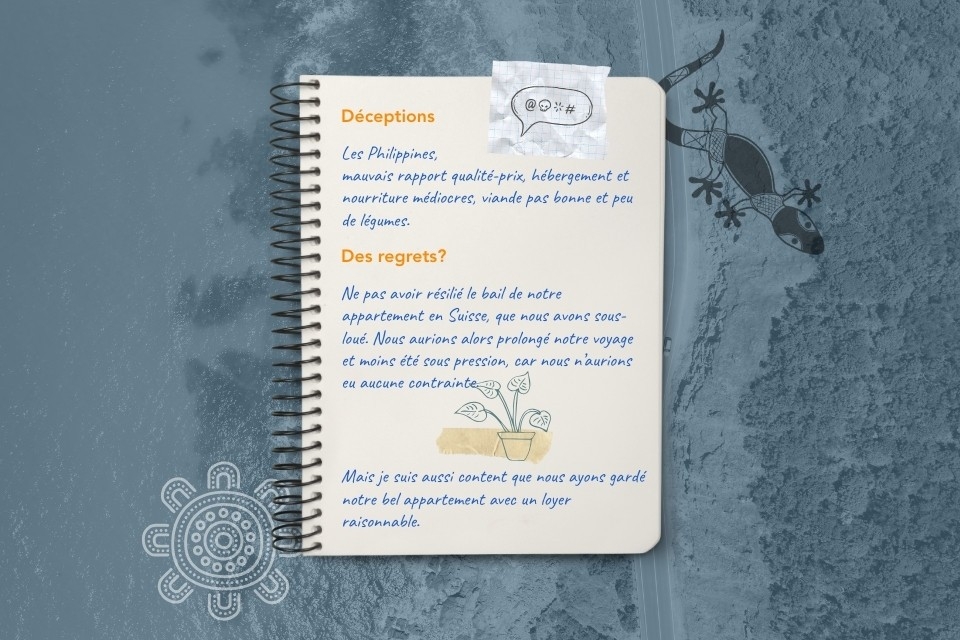 @☺#
Déceptions
Les Philippines,
mauvais rapport qualité-prix, hébergement et
nourriture médiocres, viande pas bonne et peu
de légumes.
Des regrets?
Ne pas avoir résilié le bail de notre
appartement en Suisse, que nous avons sous-
loué. Nous aurions alors prolongé notre voyage
et moins été sous pression, car nous n'aurions
eu aucune contrainte.
Mais je suis aussi content que nous ayons gardé
notre bel appartement avec un loyer
raisonnable.